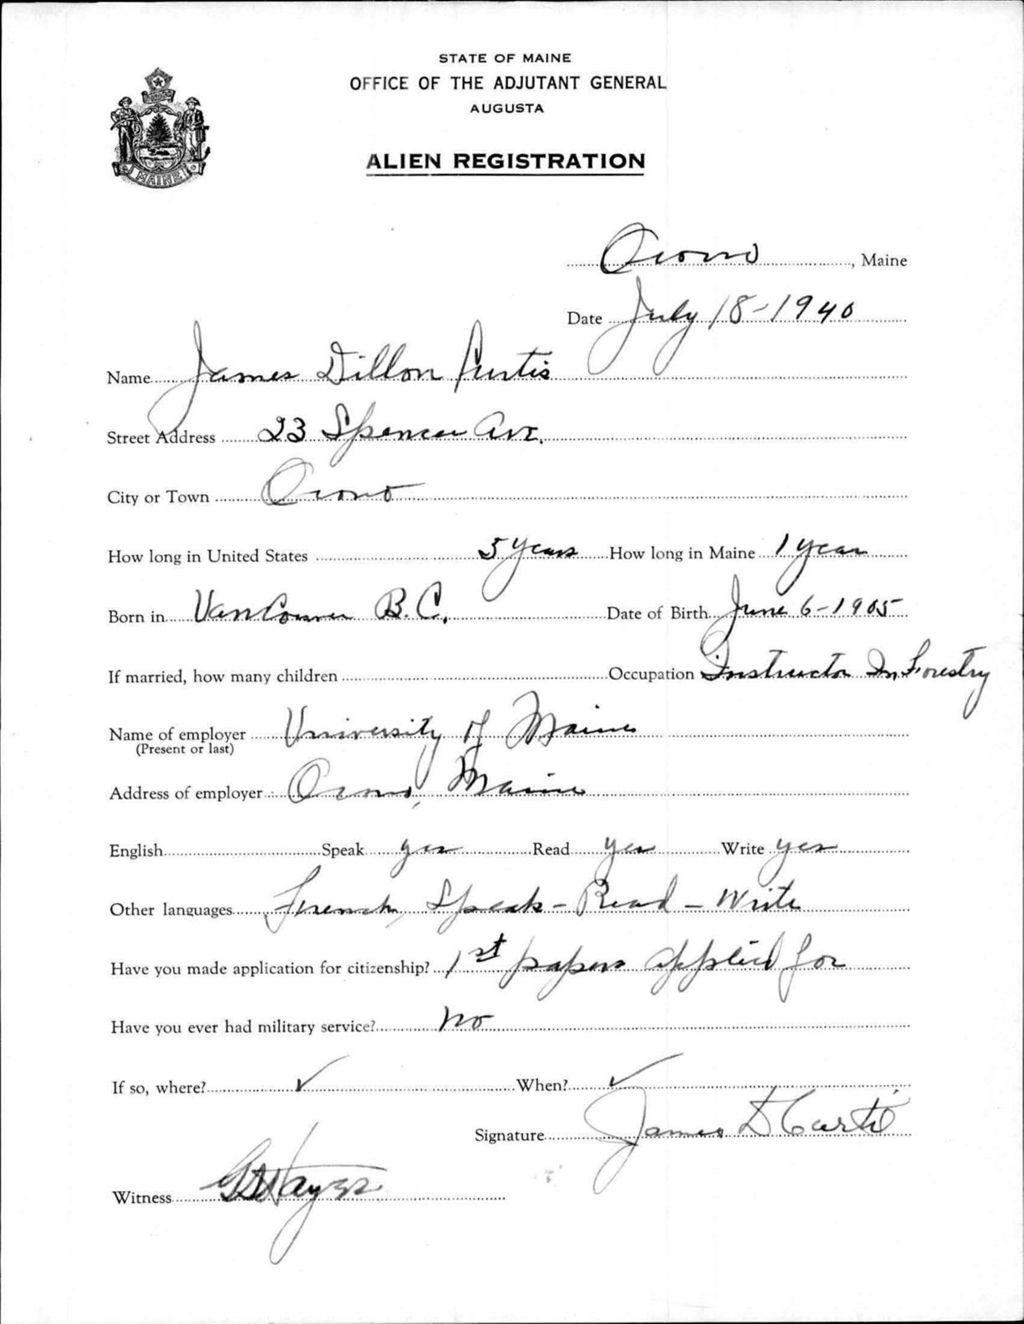 STATE OF MAINE
OFFICE OF THE ADJUTANT GENERAL
AUGUSTA
ALIEN REGISTRATION
MAINE
Orono, Maine
Date July 18-1940
Name James Dillon Curtis
Street Address 23 Spencer Ave.
City or Town Orono
How long in United States 5 years How long in Maine 1 year
Born in Vancouver B.C. Date of Birth June 6-1905
If married, how many children Occupation Instructor In Forestry
Name of employer University of Maine
(Present or last)
Address of employer Orono, Maine
English Speak yes Read yes Write yes
Other languages French, Speak-Read-Write
Have you made application for citizenship? 1st papers applied for
Have you ever had military service? no
If so, where? ✓ When? ✓
Signature James D Curtis
Witness Hayes